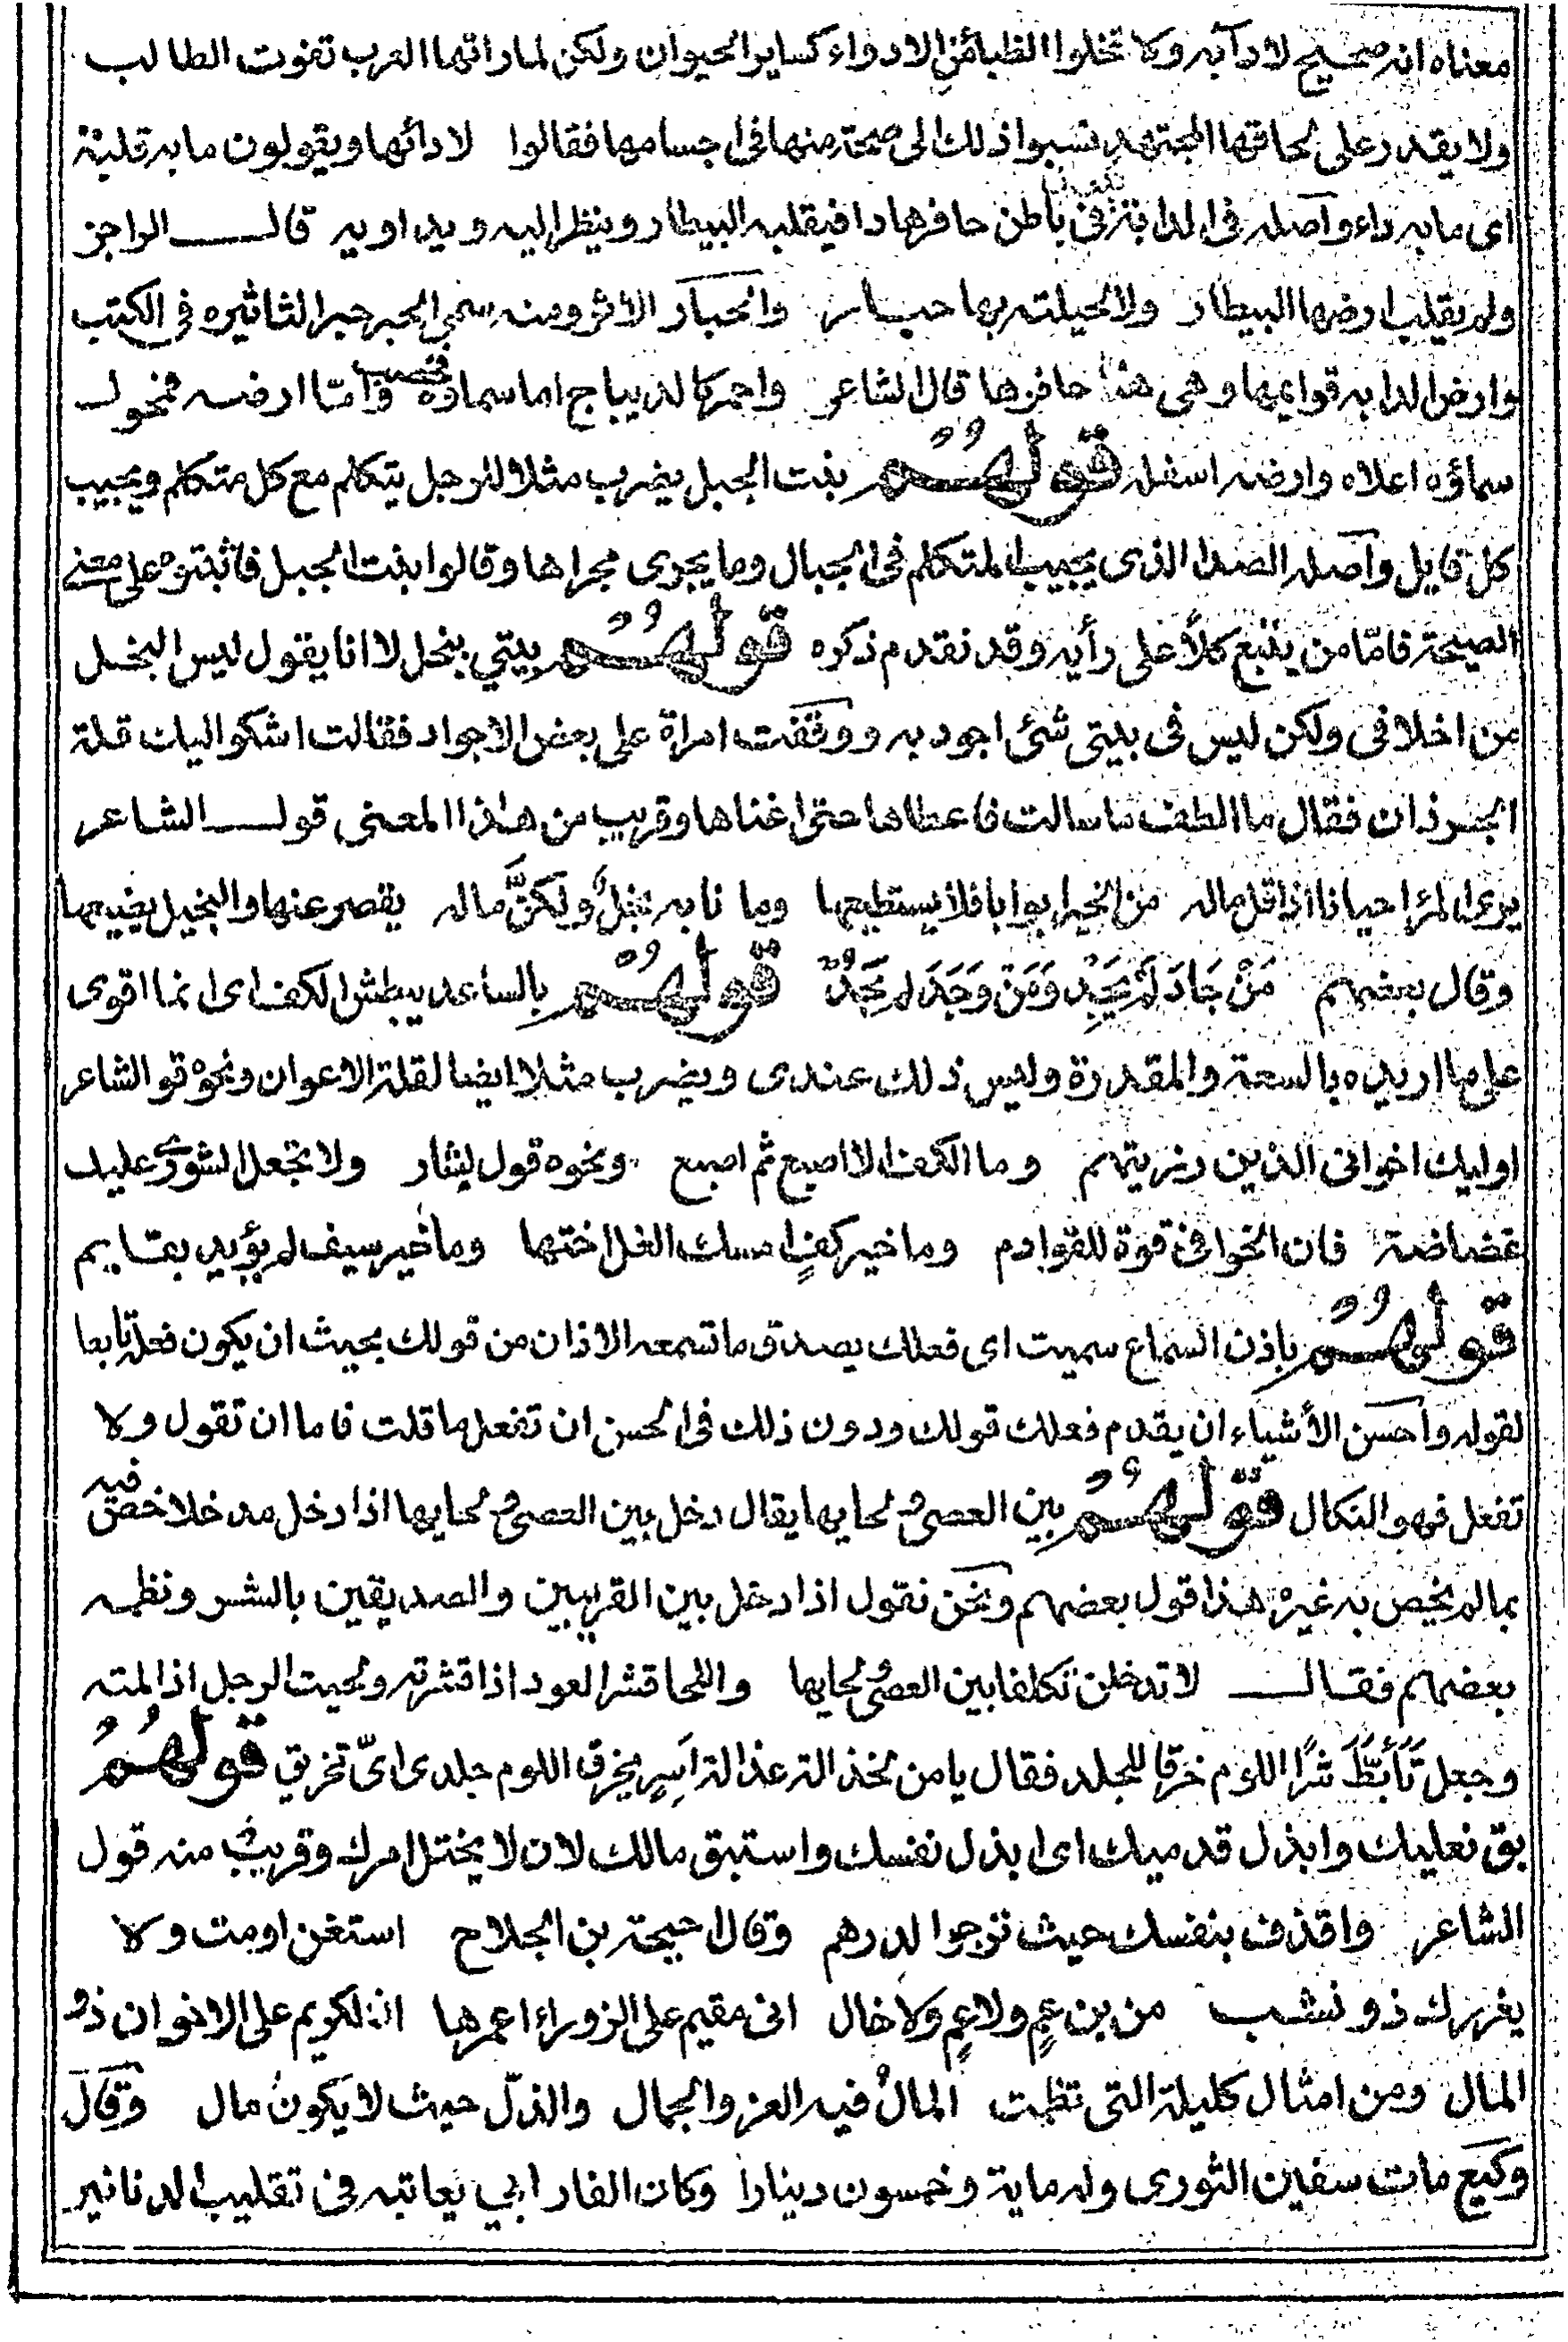 معناه انه صحيح لا دآ به ولا تخلوا الظبا من الادواء كساير الحيوان ولكن لما راتها العرب تفوت الطالب
ولا يقدر على لحاقها المجتهد نسبوا ذلك الى صحة منها فى اجسامها فقالوا لا دائها ويقولون ما به قلبة
اى ما به داء وآصله فى الدابة فى باطن حافرها دا فيقلبه البيطار وينظر اليه ويداويه قال الراجز
ولم يقلب ارضها البيطار ولا لحيلته بها حبار والحبار الأثر ومنه سمى الحبر حبرا لتاثيره فى الكتب
وارض الدابه قوايمها وهى هنا حافرها قال الشاعر واحمر كالديباج اما سماؤه وامّا ارضه فمحول
سماؤه اعلاه وارضه اسفله قولهُم بنت الجبل يضرب مثلا للرجل يتكلم مع كل متكلم ويجيب
كل قايل وآصله الصدا الذى يجيب المتكلم فى الجبال وما يجرى مجراها وقالوا بنت الجبل فانثوه على معنى
الصيحة فامّا من يتبع كلاً على رأيه وقد تقدم ذكره قولهُم بيتي يبخل لا انا يقول ليس البخل
من اخلاقى ولكن ليس فى بيتى شئ اجود به ووقفت امراة على بعض الاجواد فقالت اشكوا اليك قلة
الجرذان فقال ما الطف ما سالت فاعطاها حتى اغناها وقريب من هذا المعنى قول الشاعر
يرى المرٔ احيانا اذا قل ماله من الخير ابوابا فلا يستطيعها وما نا به بخل ولكنَّ ماله يقصر عنها والبخيل يضيعها
وقال بعضهم مَنْ جَادَ لَمْ يَجِدْ وَمَنْ وَجَدَ لم يَجُدْ قولهُم بالساعد يبطش الكف اى انما اقوى
على ما اريده بالسعة والمقدرة وليس ذلك عندى ويضرب مثلا ايضا لقلة الاعوان ونحوه قو الشاعر
اوليك اخوانى الذين رزيتهم وما الكف الا اصبع ثم اصبع ونحوه قول بشار ولا تجعل الشورى عليك
غضاضة فان الخوافى قوة للقوادم وما خير كفٍ امسك الغل اختها وما خير سيف لم يؤيد بقايم
قولهُم باذن السماع سميت اى فعلك يصدق ما تسمعه الاذان من قولك بحيث ان يكون فعله تابعا
لقوله وآحسن الأشياء ان يقدم فعلك قولك ودون ذلك فى الحسن ان تفعل ما قلت فاما ان تقول ولا
تفعل فهو النكال قولهُم بين العصى ولحايها يقال دخل بين العصى ولحايها اذا دخل مدخلا خص فيه
بما لم يخص به غيره هذا قول بعضهم ونحن نقول اذا دخل بين القريبين والصديقين بالشر ونظمه
بعضهم فقال لا تدخلن تكلفا بين العصى ولحايها واللحا قشر العود اذا قشرته ولحيت الرجل اذا لمته
وجعل تَأَبَّطَ شرًا اللوم خرقا للجلد فقال يا من لخذالة عذالة اَسِرٍ يخرق اللوم جلدى اىّ تخريق قولهُم
بق نعليك وابذل قدميك اى ابذل نفسك واستبق مالك لان لا يختل امرك وقريب منه قول
الشاعر واقذف بنفسك حيث ترجوا الدرهم وقال احيحة بن الجلاح استغن او مت ولا
يغررك ذو نشب من بن عمٍ ولا عمٍ ولا خال انى مقيم على الزوراء اعمرها ان الكريم على الاخوان ذو
المال ومن امثال كليلة التى نظمت المالُ فيه العز والجمال والذلّ حيث لا يكون مال وقال
وكيع مات سفين الثورى وله ماية وخمسون دينارا وكان الفارابي يعاتبه فى تقليب الدنانير